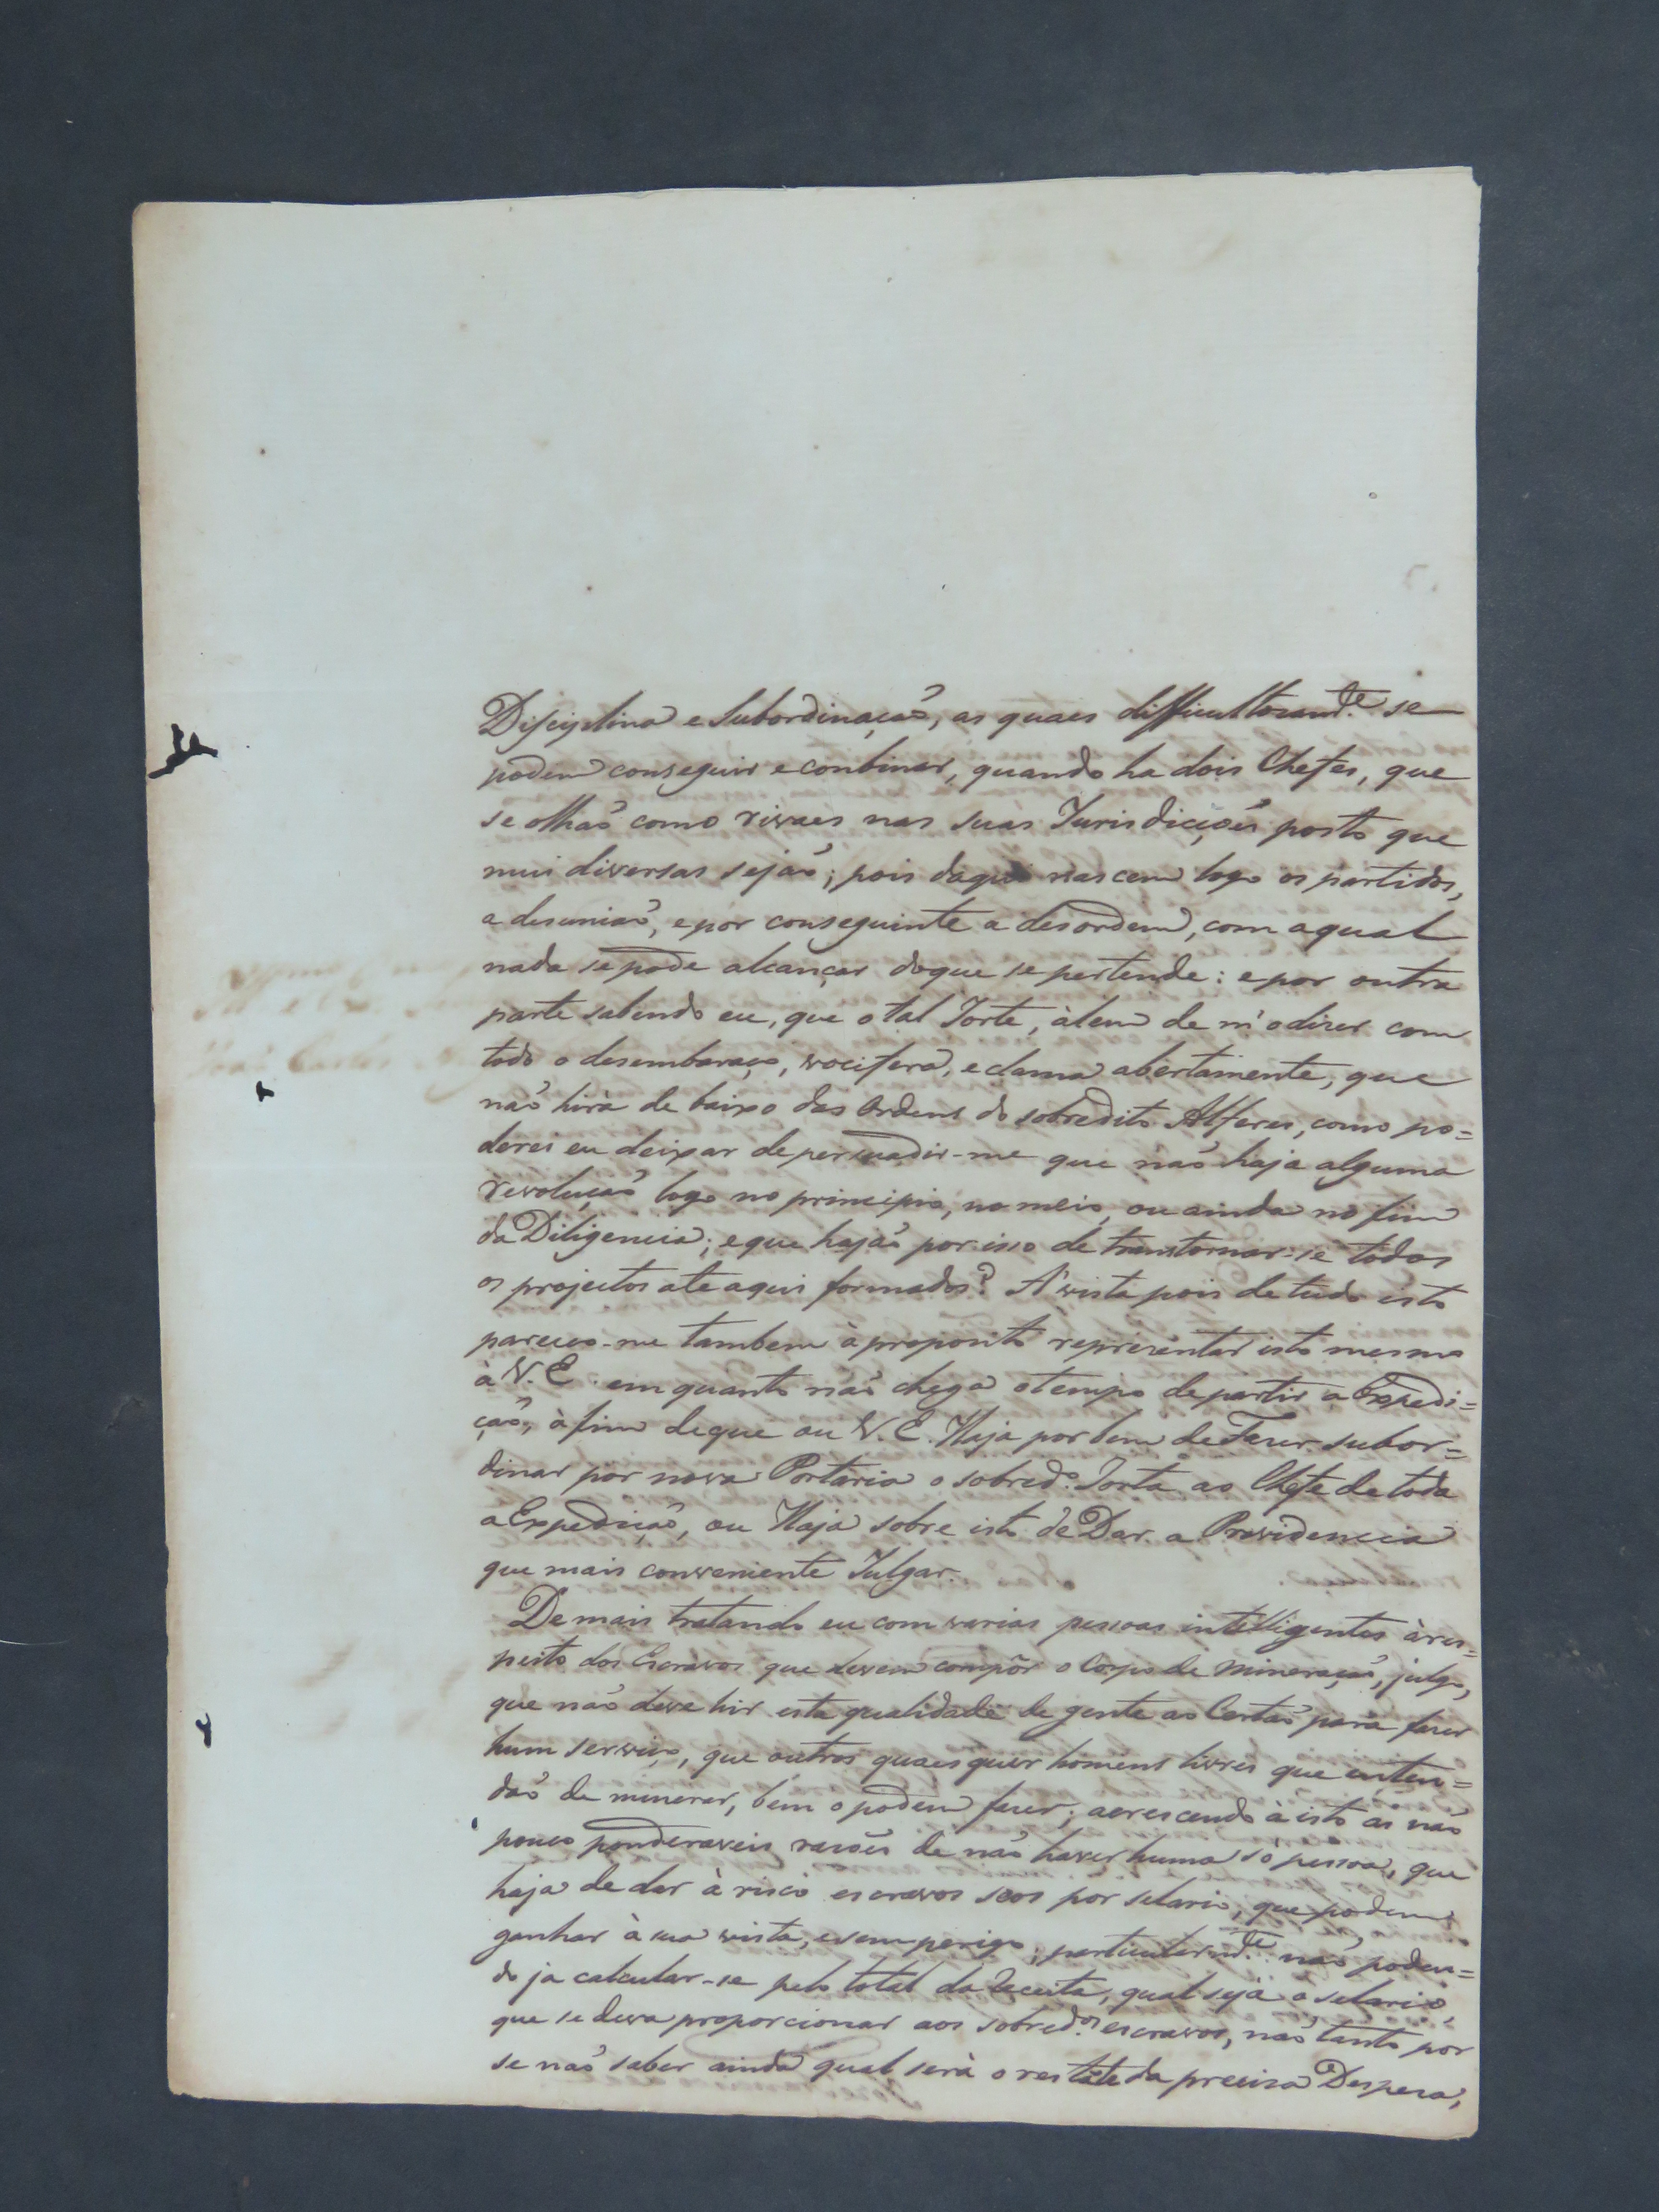 Disciplina e Subordinação, as quaes difficultozamte. se
podem conseguir e conbinar, quando ha dois Chefes, que
se olhaõ como rivaes nas suas Jurisdicções posto que
mui diversas sejaõ; pois daqui nascem logo os partidos,
a desuniaõ, e por conseguinte a desordem, com a qual
nada se pode alcançar do que se pertende: e por outra
parte sabendo eu, que o tal Torte, àlem de m'o dizer com
todo o desembaraço, vocifera, e clama abertamente, que
naõ hirà de baixo das Ordens do sobredito Alferes, como po=
derei eu deixar de persuadir-me que naõ haja alguma
revoluçaõ logo no principio, no meio, ou ainda no fim
da Diligencia; e que hajaõ por isso de transtornar-se todos
os projectos ate aqui formados? A' vista pois de tudo isto
pareceo-me tambem à proposito reprezentar isto mesmo
à V. E. em quanto naõ chega o tempo de partir a Expedi=
çaõ, à fim de que ou V. E. Haja por bem de Fazer subor=
dinar por nova Portaria o sobredo. Torta ao Chefe de toda
a Expediçaõ, ou Haja sobre isto de Dar a Providencia
que mais conveniente Julgar.
De mais tratando eu com varias pessoas intelligentes à res=
peito dos Escravos que devem compôr o Corpo de Mineraçaõ, julgo,
que naõ deve hir esta qualidade de gente ao Certaõ para fazer
hum serviço, que outros quaesquer homens livres que enten=
daõ de minerar, bem o podem fazer; acrescendo à isto as naõ
pouco ponderaveis razões de naõ haver huma só pessoa, que
haja de dar à risco escravos seos por selario, que podem
ganhar à sua vista, e sem perigo; particularmte. naõ poden=
do ja calcular-se pelo total da Receita, qual seja o selario,
que se deva proporcionar aos sobredos. escravos, naõ tanto por
se naõ saber ainda qual serà o restate da preciza Despeza,